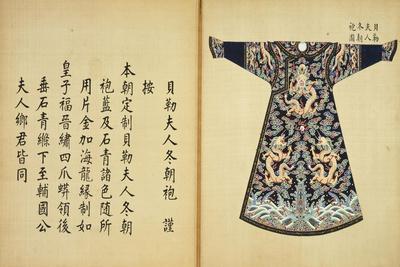 貝勒夫人冬朝袍 謹
按
本朝定制貝勒夫人冬朝
袍藍及石青諸色随所
用片金加海龍緣制如
皇子福晉繡四爪蟒領後
垂石青縧下至輔國公
夫人鄉君皆同
貝勒
夫人
冬朝
袍圖